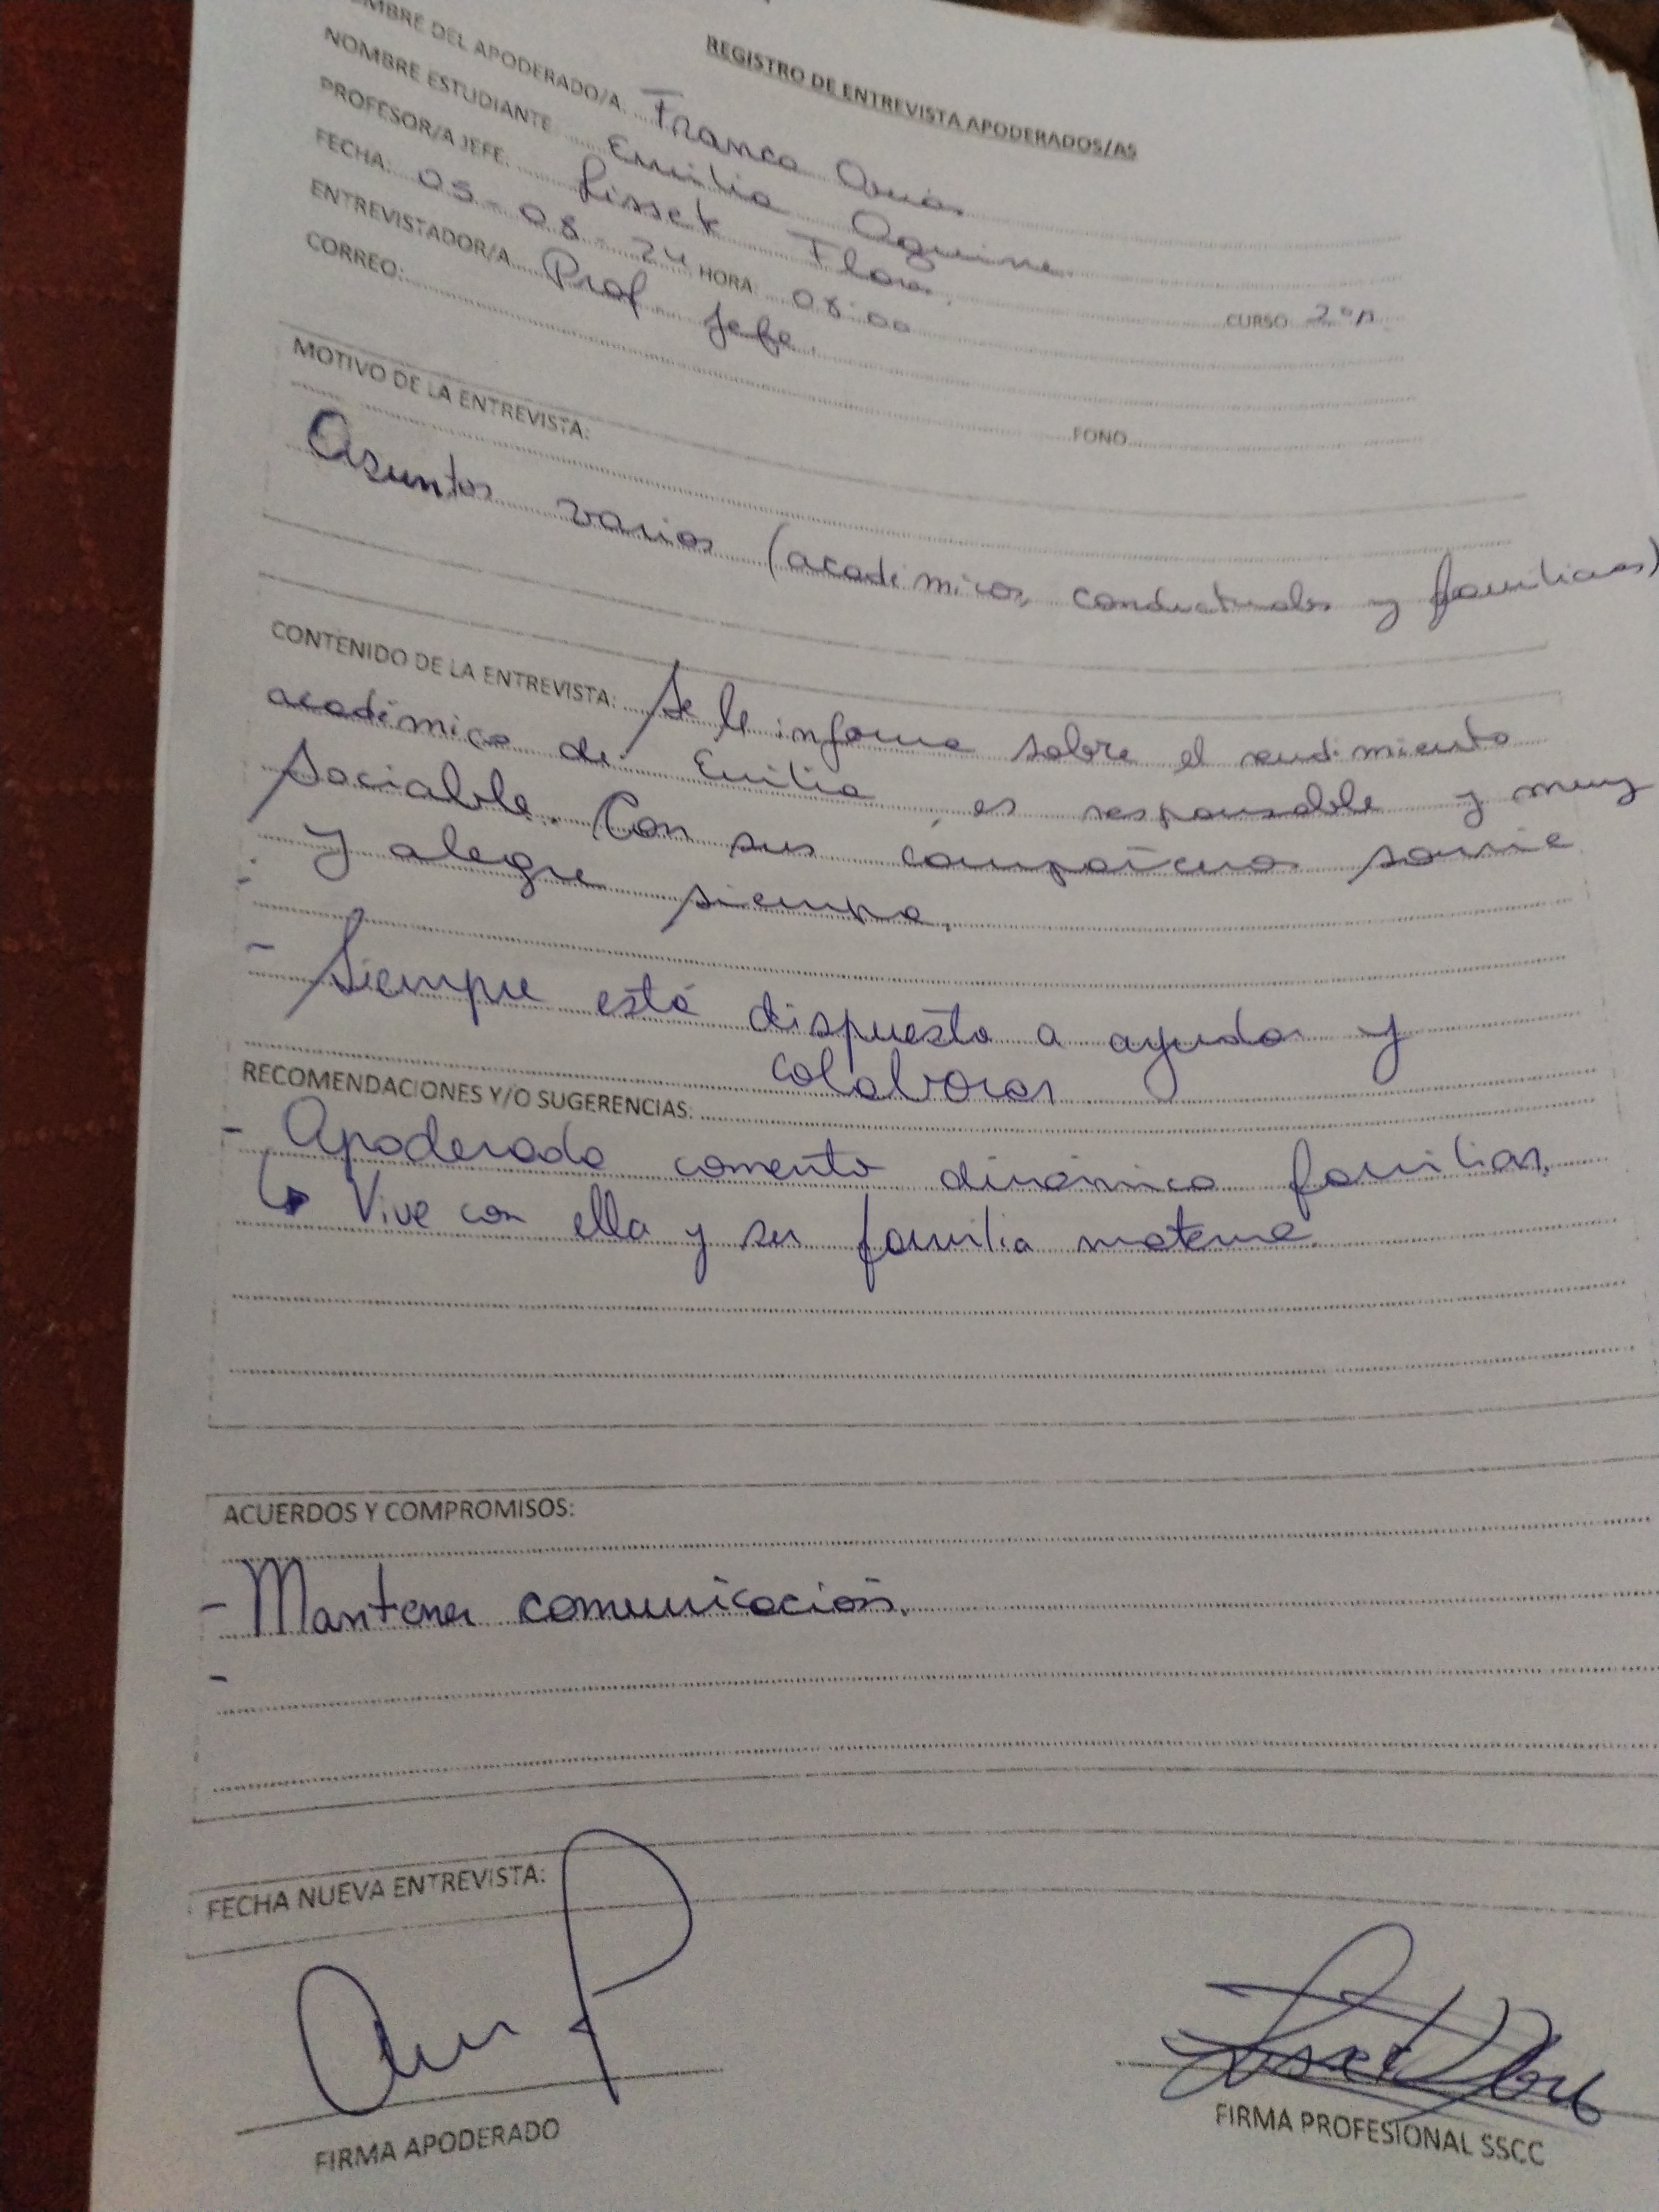 REGISTRO DE ENTREVISTA APODERADOS/AS
MBRE DEL APODERADO/A: Franco
NOMBRE ESTUDIANTE Emilia
PROFESOR/A JEFE: Lisset Flores. CURSO 2°A
FECHA: 05-08-24 HORA: 08:00
ENTREVISTADOR/A Prof Jefe.
CORREO: FONO
MOTIVO DE LA ENTREVISTA:
Asuntos varios (académicos, conductuales y familiares)
CONTENIDO DE LA ENTREVISTA: Se le informa sobre el rendimiento
académico de Emilia, es responsable y muy
sociable. Con sus compañeros sonríe
y alegre siempre.
- Siempre está dispuesta a ayudar y
colaborar
RECOMENDACIONES Y/O SUGERENCIAS:
- Apoderada comenta dinámica familiar.
↳ Vive con ella y su familia materna.
ACUERDOS Y COMPROMISOS:
- Mantener comunicación.
-
FECHA NUEVA ENTREVISTA:
FIRMA APODERADO
FIRMA PROFESIONAL SSCC